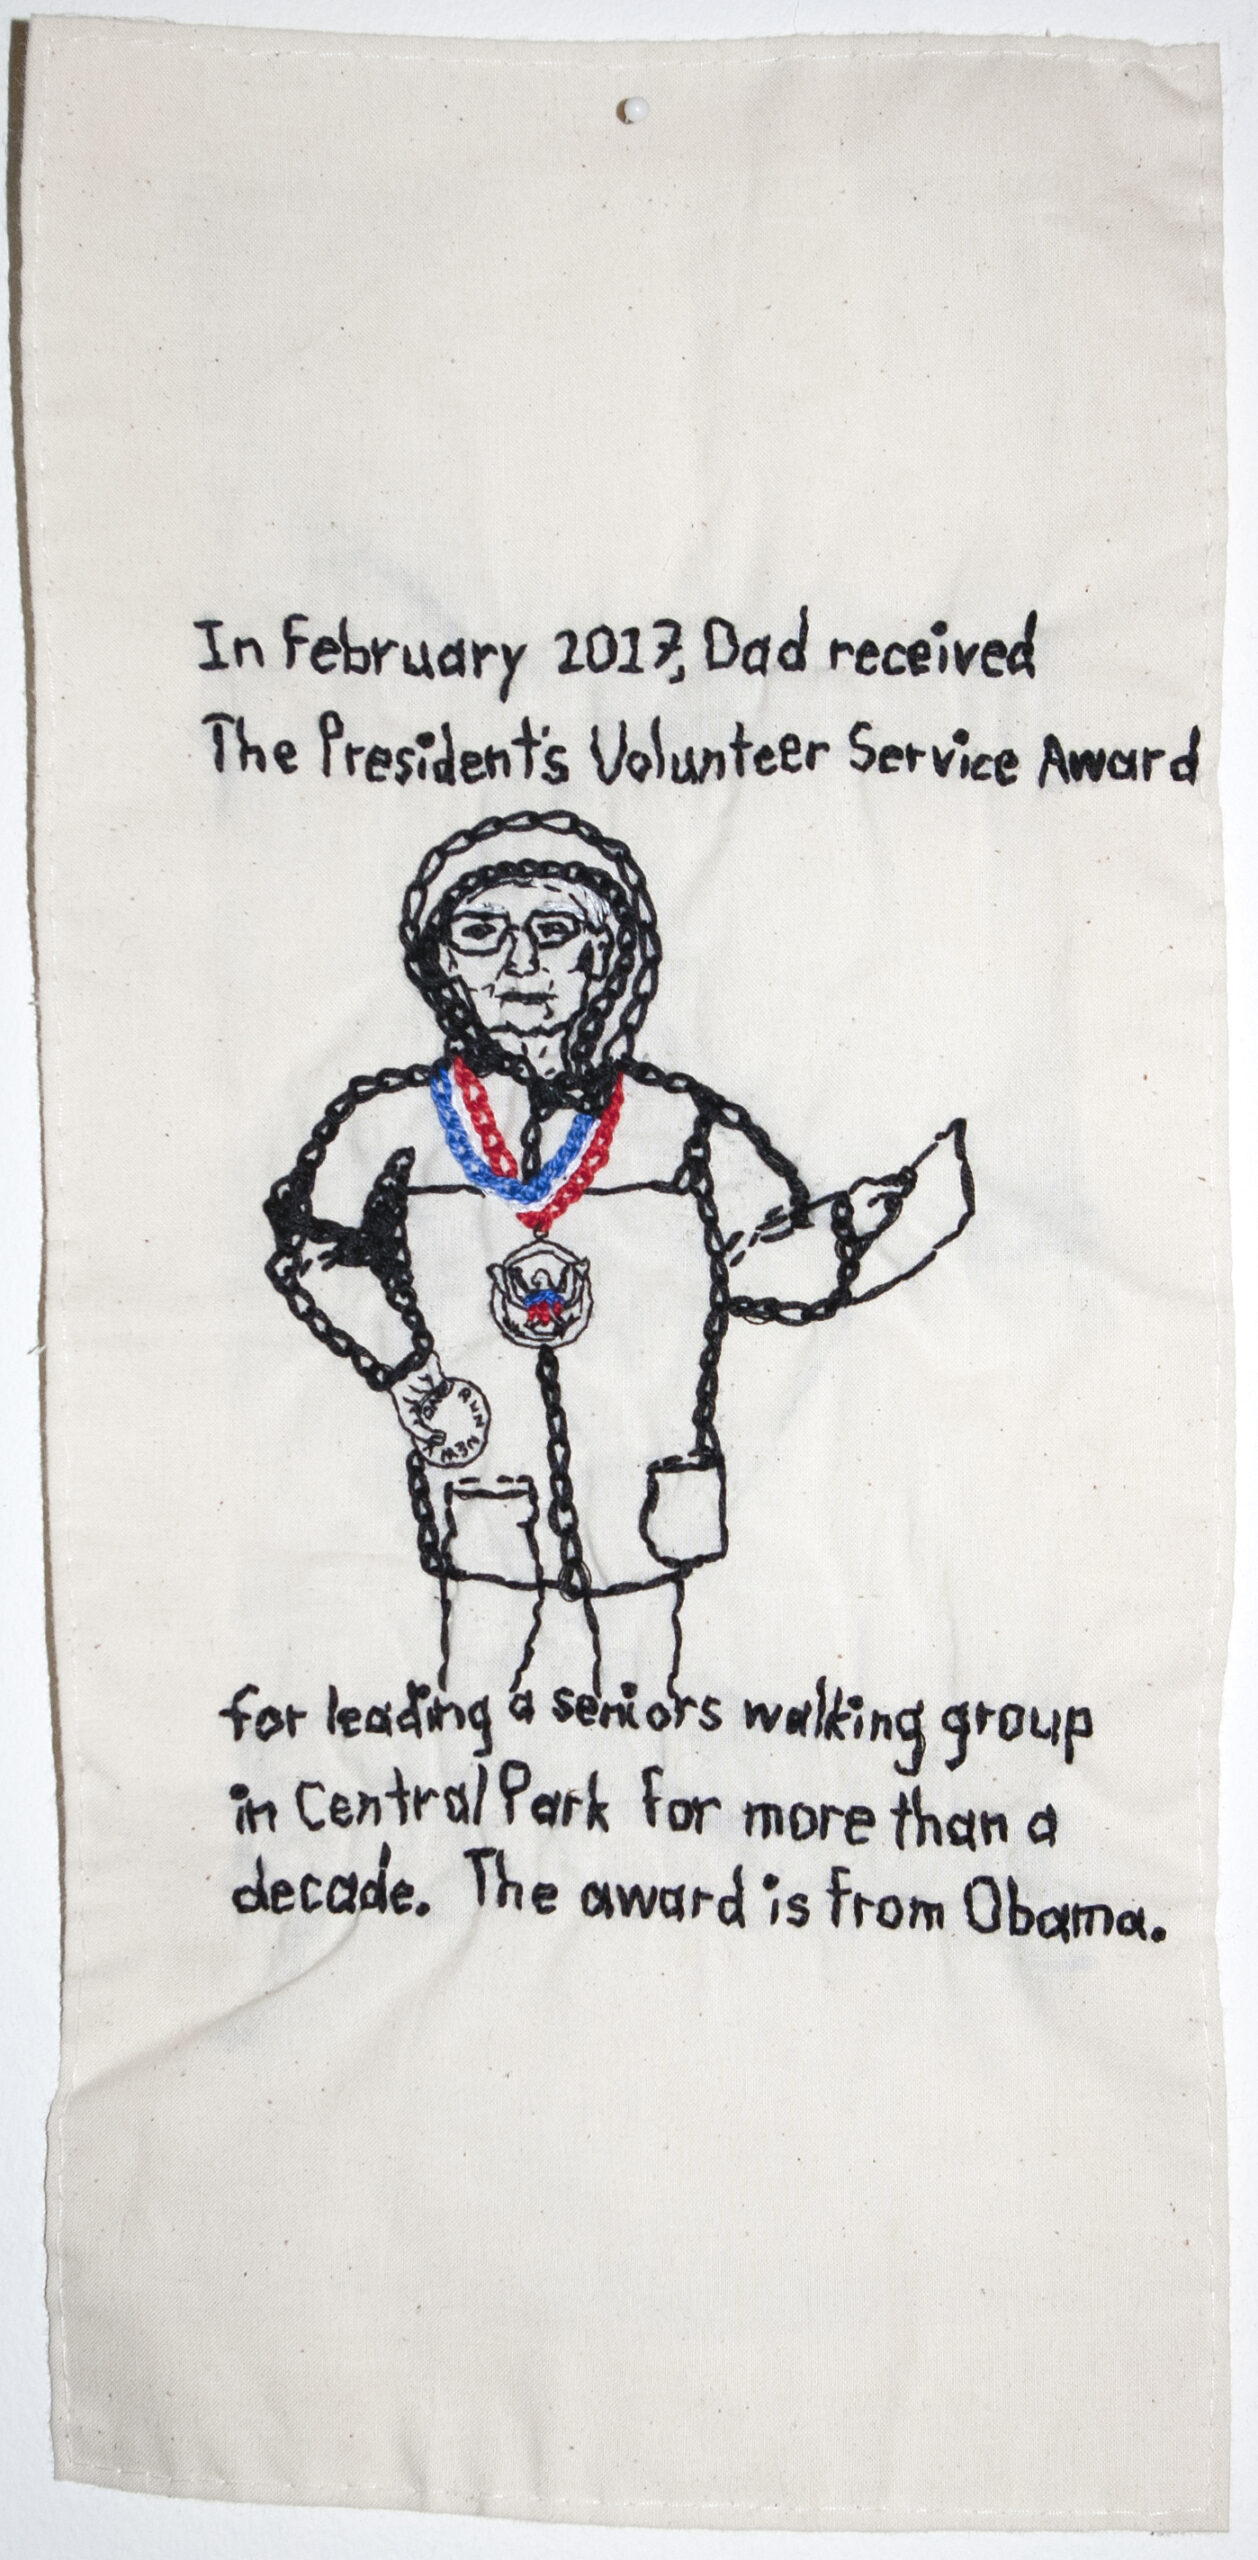 In February 2017, Dad received
The President's Volunteer Service Award
RUN
NEW
for leading a seniors walking group
in Central Park for more than a
decade. The award is from Obama.